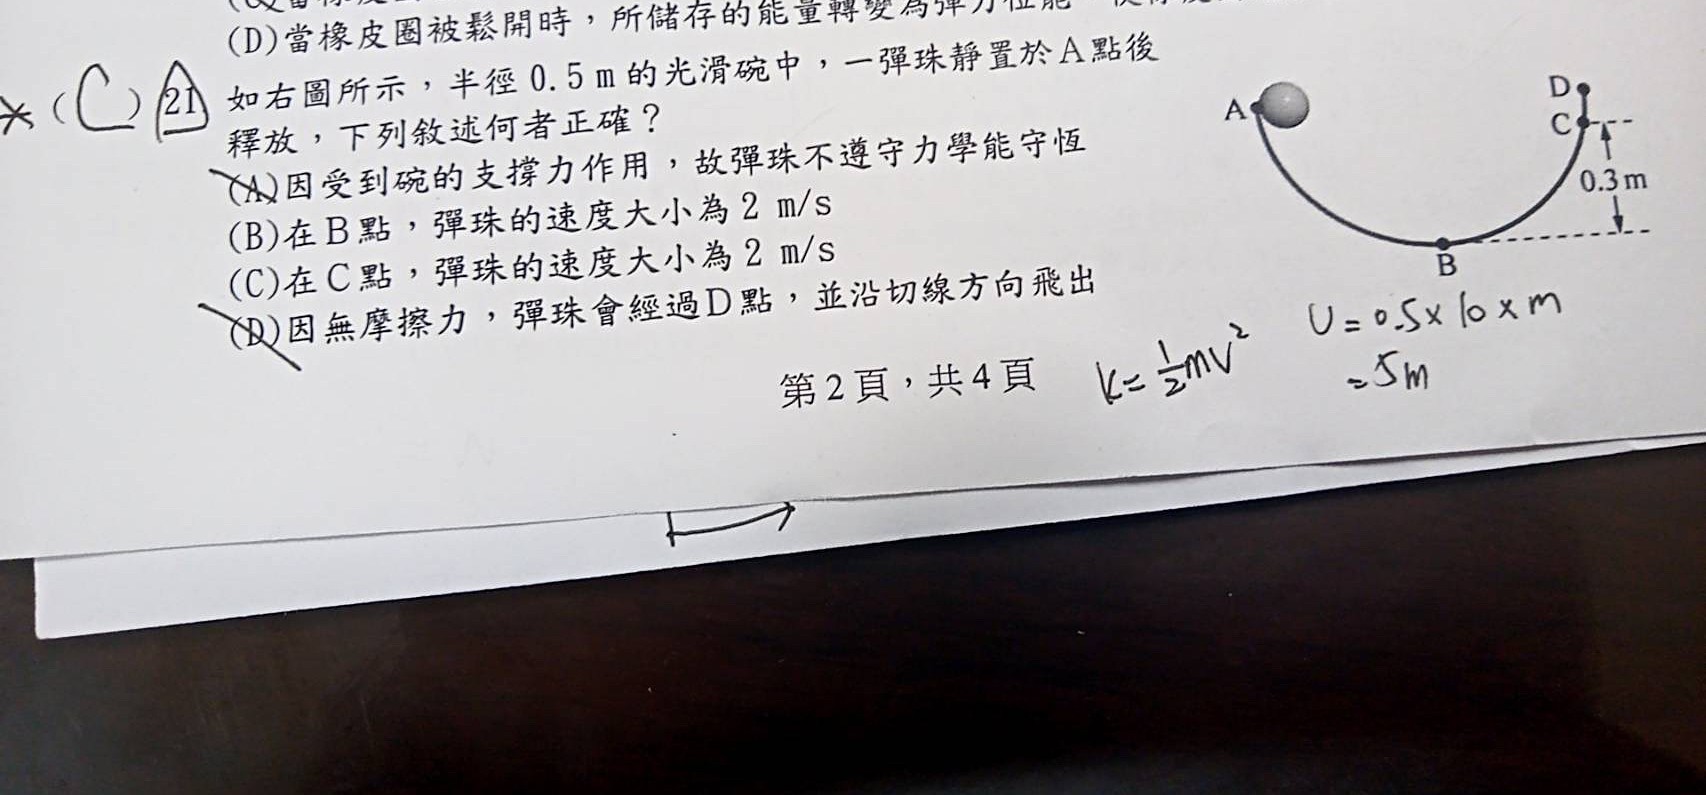 (D)當橡皮圈被鬆開時，所儲存的能量轉變為彈力位能
(C) 21 如右圖所示，半徑 0.5 m 的光滑碗中，一彈珠靜置於A點後
釋放，下列敘述何者正確？
(A)因受到碗的支撐力作用，故彈珠不遵守力學能守恆
(B)在B點，彈珠的速度大小為 2 m/s
(C)在C點，彈珠的速度大小為 2 m/s
(D)因無摩擦力，彈珠會經過D點，並沿切線方向飛出
A
D
C
0.3 m
B
U = 0.5 × 10 × m
= 5m
K = 1/2 mv²
第2頁，共4頁